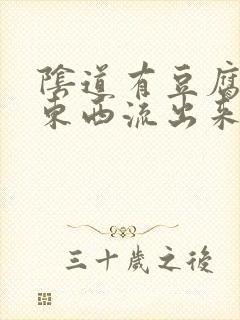 陰道有豆腐
東西流出來
三十歲之後